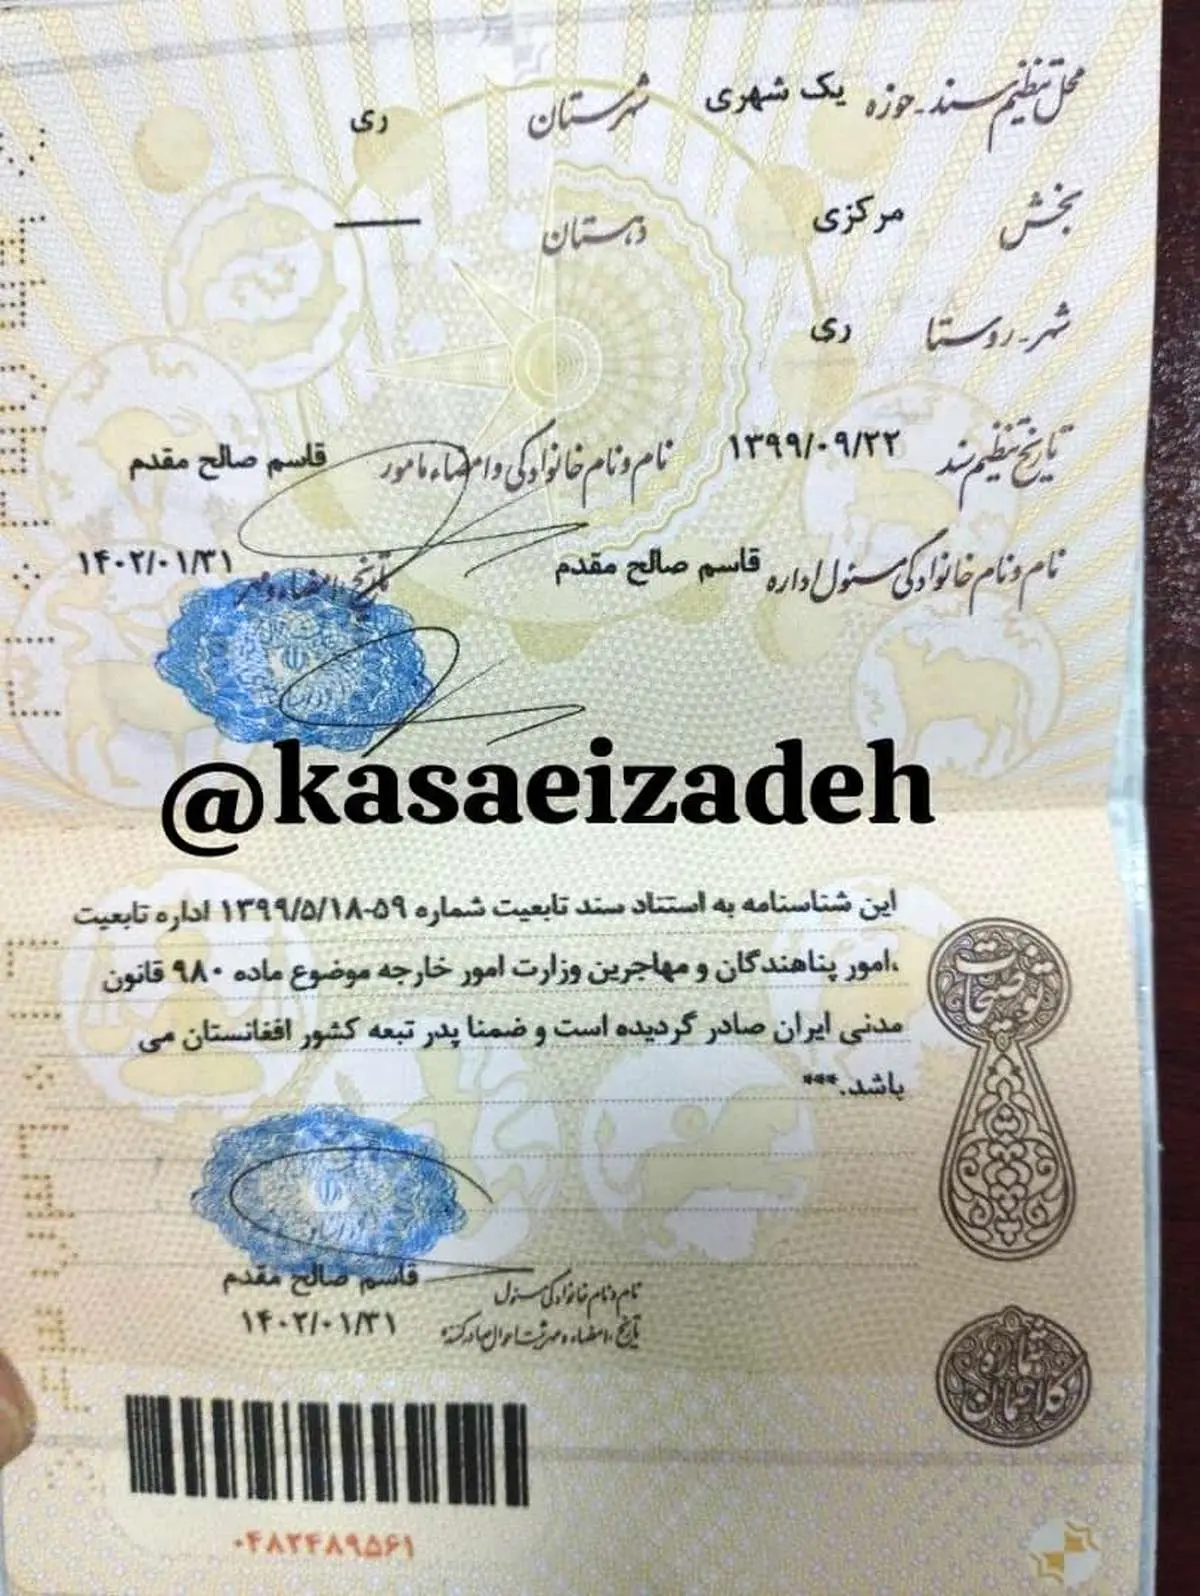 محل تنظیم سند - حوزه یک شهری شهرستان ری
بخش مرکزی دهستان ——
شهر - روستا ری
تاریخ تنظیم سند ۱۳۹۹/۰۹/۲۲ نام و نام خانوادگی و امضاء مامور قاسم صالح مقدم
نام و نام خانوادگی مسئول اداره قاسم صالح مقدم تاریخ، امضاء و مهر ۱۴۰۲/۰۱/۳۱
@kasaeizadeh
این شناسنامه به استناد سند تابعیت شماره ۵۹-۱۳۹۹/۵/۱۸ اداره تابعیت
،امور پناهندگان و مهاجرین وزارت امور خارجه موضوع ماده ۹۸۰ قانون
مدنی ایران صادر گردیده است و ضمنا پدر تبعه کشور افغانستان می
باشد.***
توضیحات
نام و نام خانوادگی مسئول قاسم صالح مقدم
تاریخ، امضاء و مهر ثبت احوال صادر کننده ۱۴۰۲/۰۱/۳۱